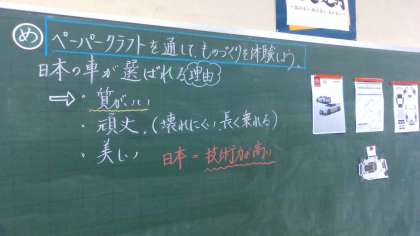 め ペーパークラフトを通して、ものづくりを体験しよう。
日本の車が選ばれる理由
⇨・質がいい
・頑丈(壊れにくい、長く乗れる)
・美しい 日本=技術力が高い